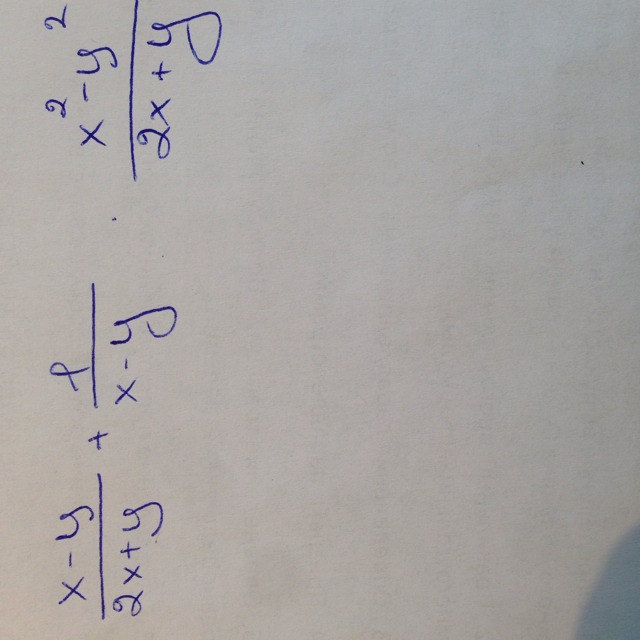 \frac{x-y}{2x+y} + \frac{1}{x-y} \cdot \frac{x^2-y^2}{2x+y}